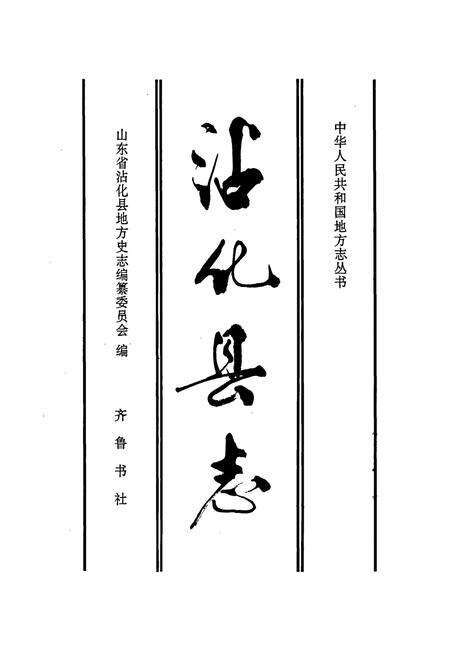 中华人民共和国地方志丛书
沾化县志
山东省沾化县地方史志编纂委员会 编
齐鲁书社